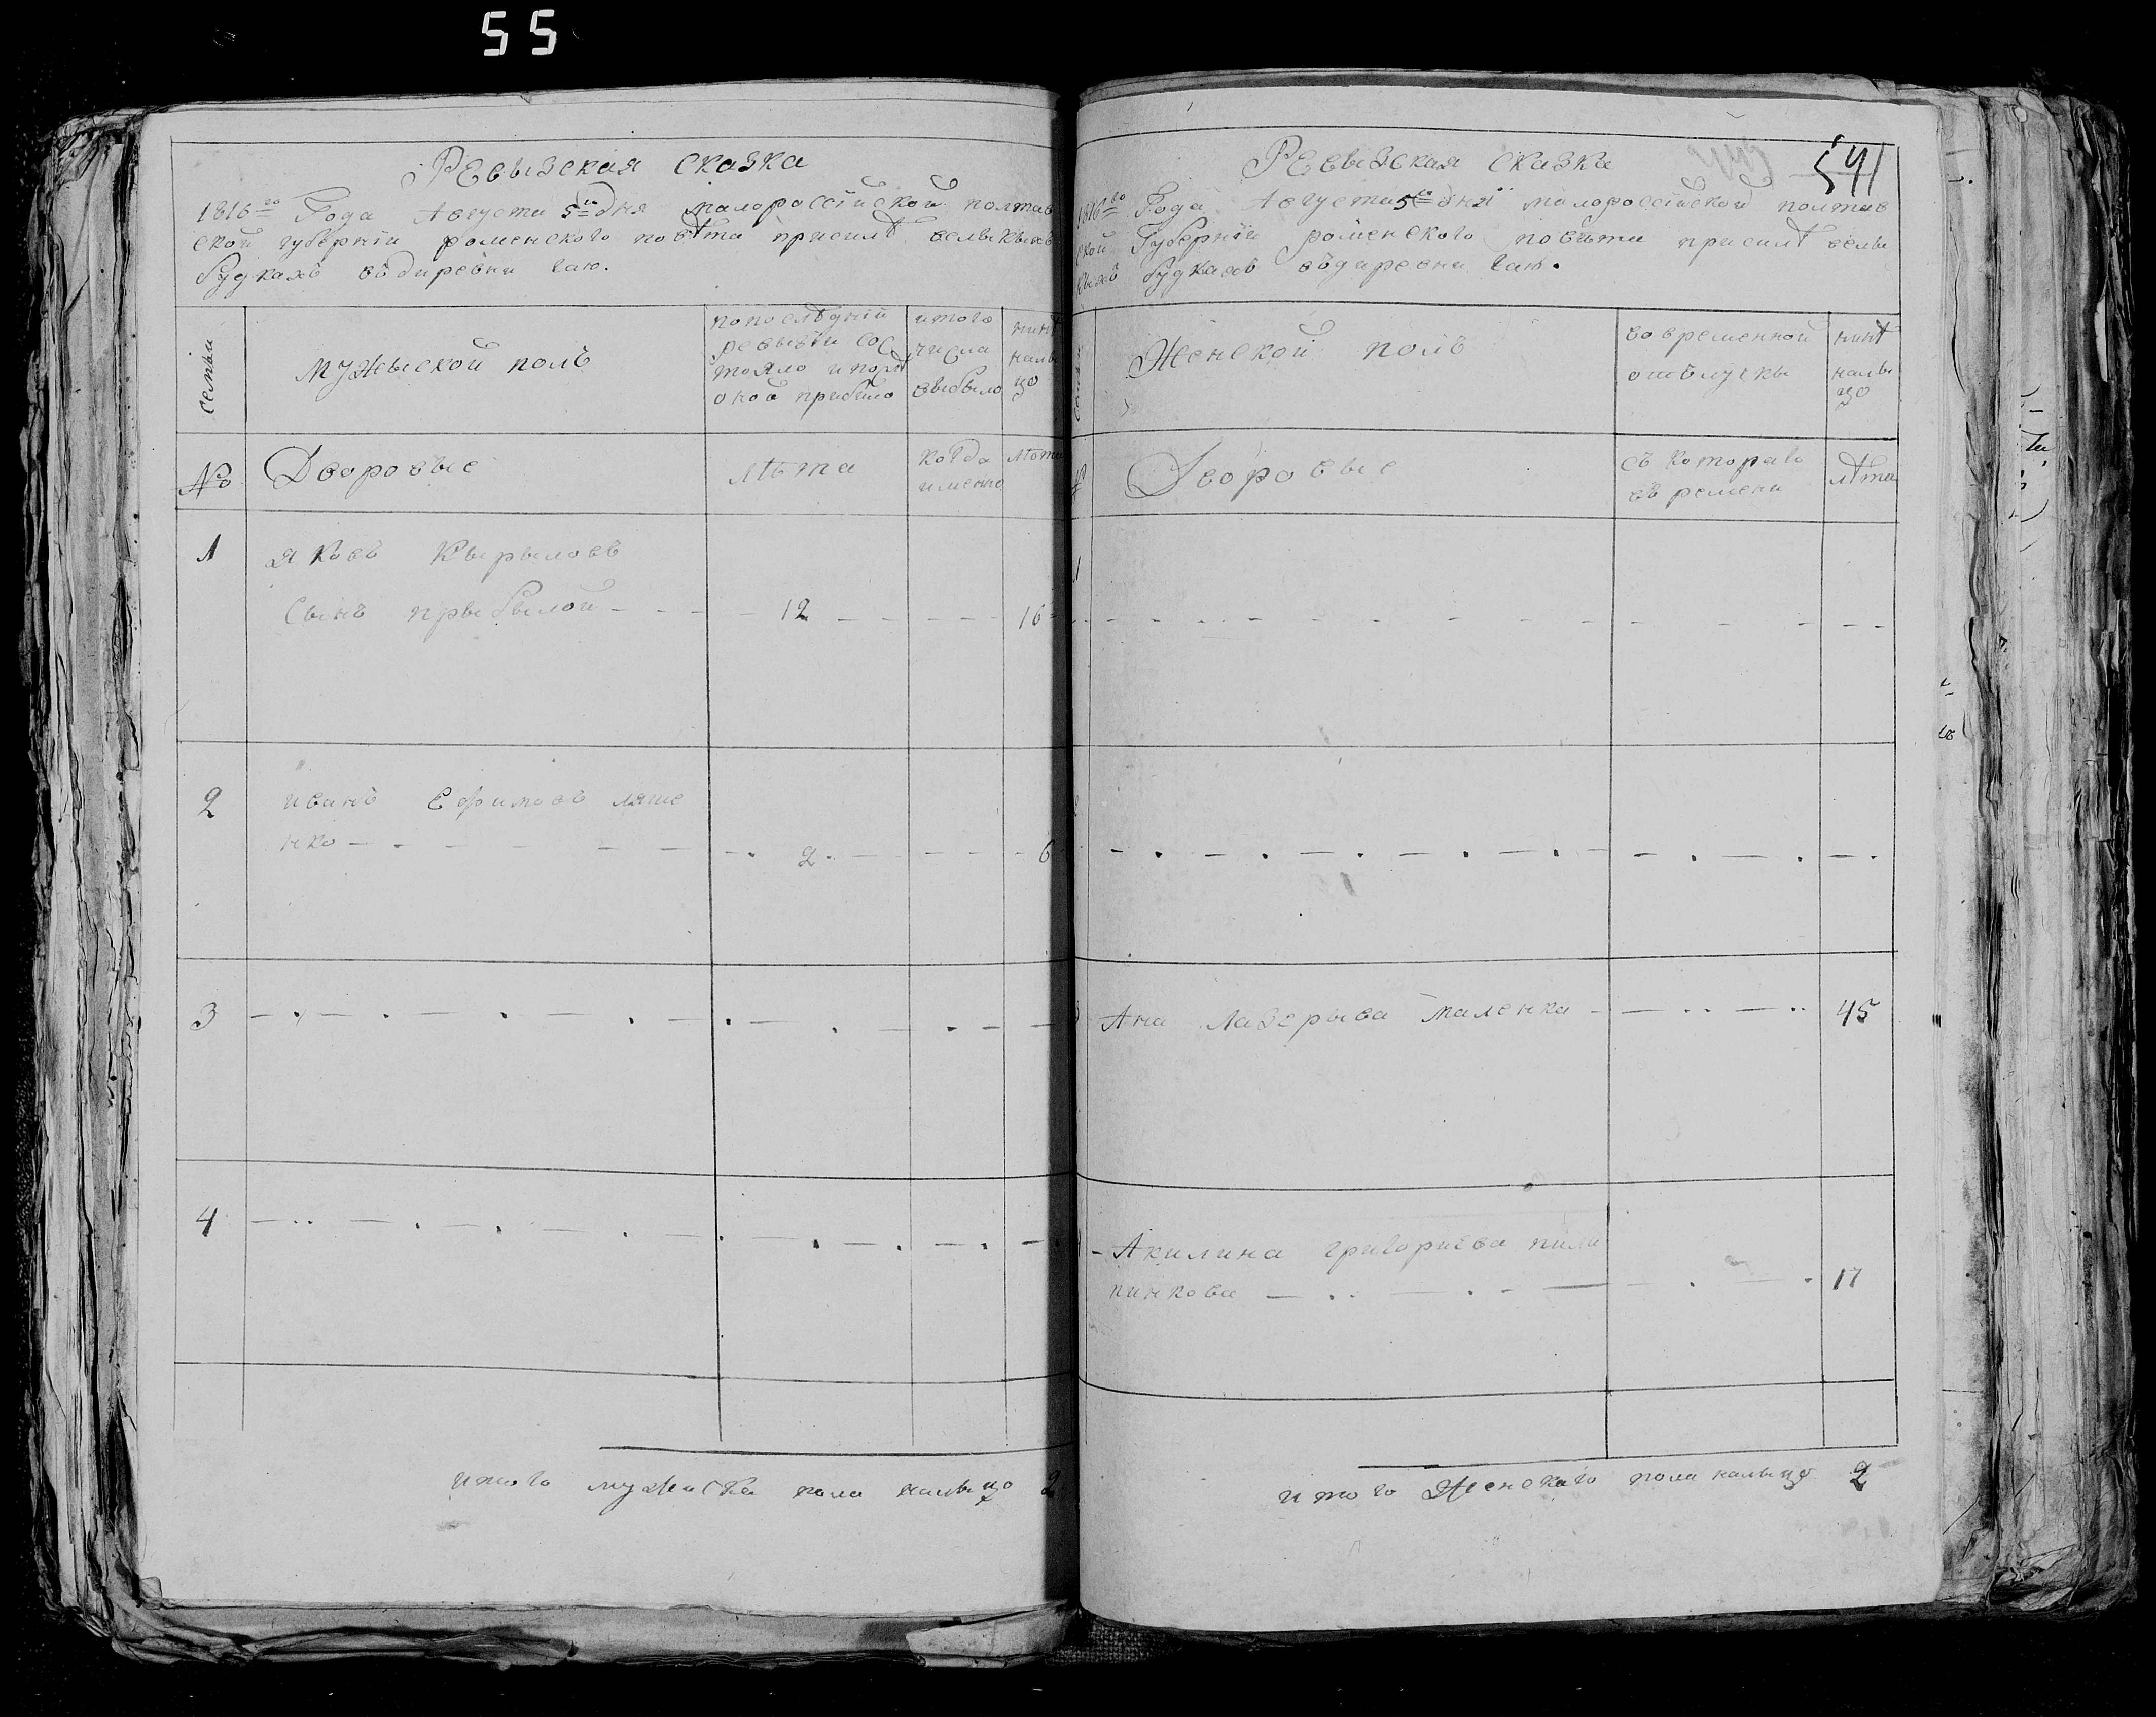 55
Ревызская сказка
1816го Года Августа 5го дня малороссійской полтав
ской губерніи роменского повѣта присилѣ велыкыхъ
будкахъ въдиревни гаю.
семьи
мужыской полъ
попослѣдній
ревызіи сос
тояло ипослѣ
оной прибыло
итого
числа
выбыло
нинѣ
налы
цо
№
Дворовые
лѣта
когда
именно
лѣта
1
Яковъ Кырыловъ
Сынъ прыбылой
12
16
2
иванъ Ефимовъ ляше
нко
2
6
3
4
итого мужиска пола налыцо 2
541
Ревызская сказка
1816го Года Августа 5го дня малороссійской полтав
ской Губерніи роменского повѣта присилѣ велы
кыхъ будкахъ въдиревни гаю.
Женской полъ
вовременной
отълучкы
нинѣ
налы
цо
Дворовые
съ которого
времени
лѣта
1
Ана Лазерыва Маленка
45
Акилина григориева пили
пинкова
17
итого Женского пола налыцо 2